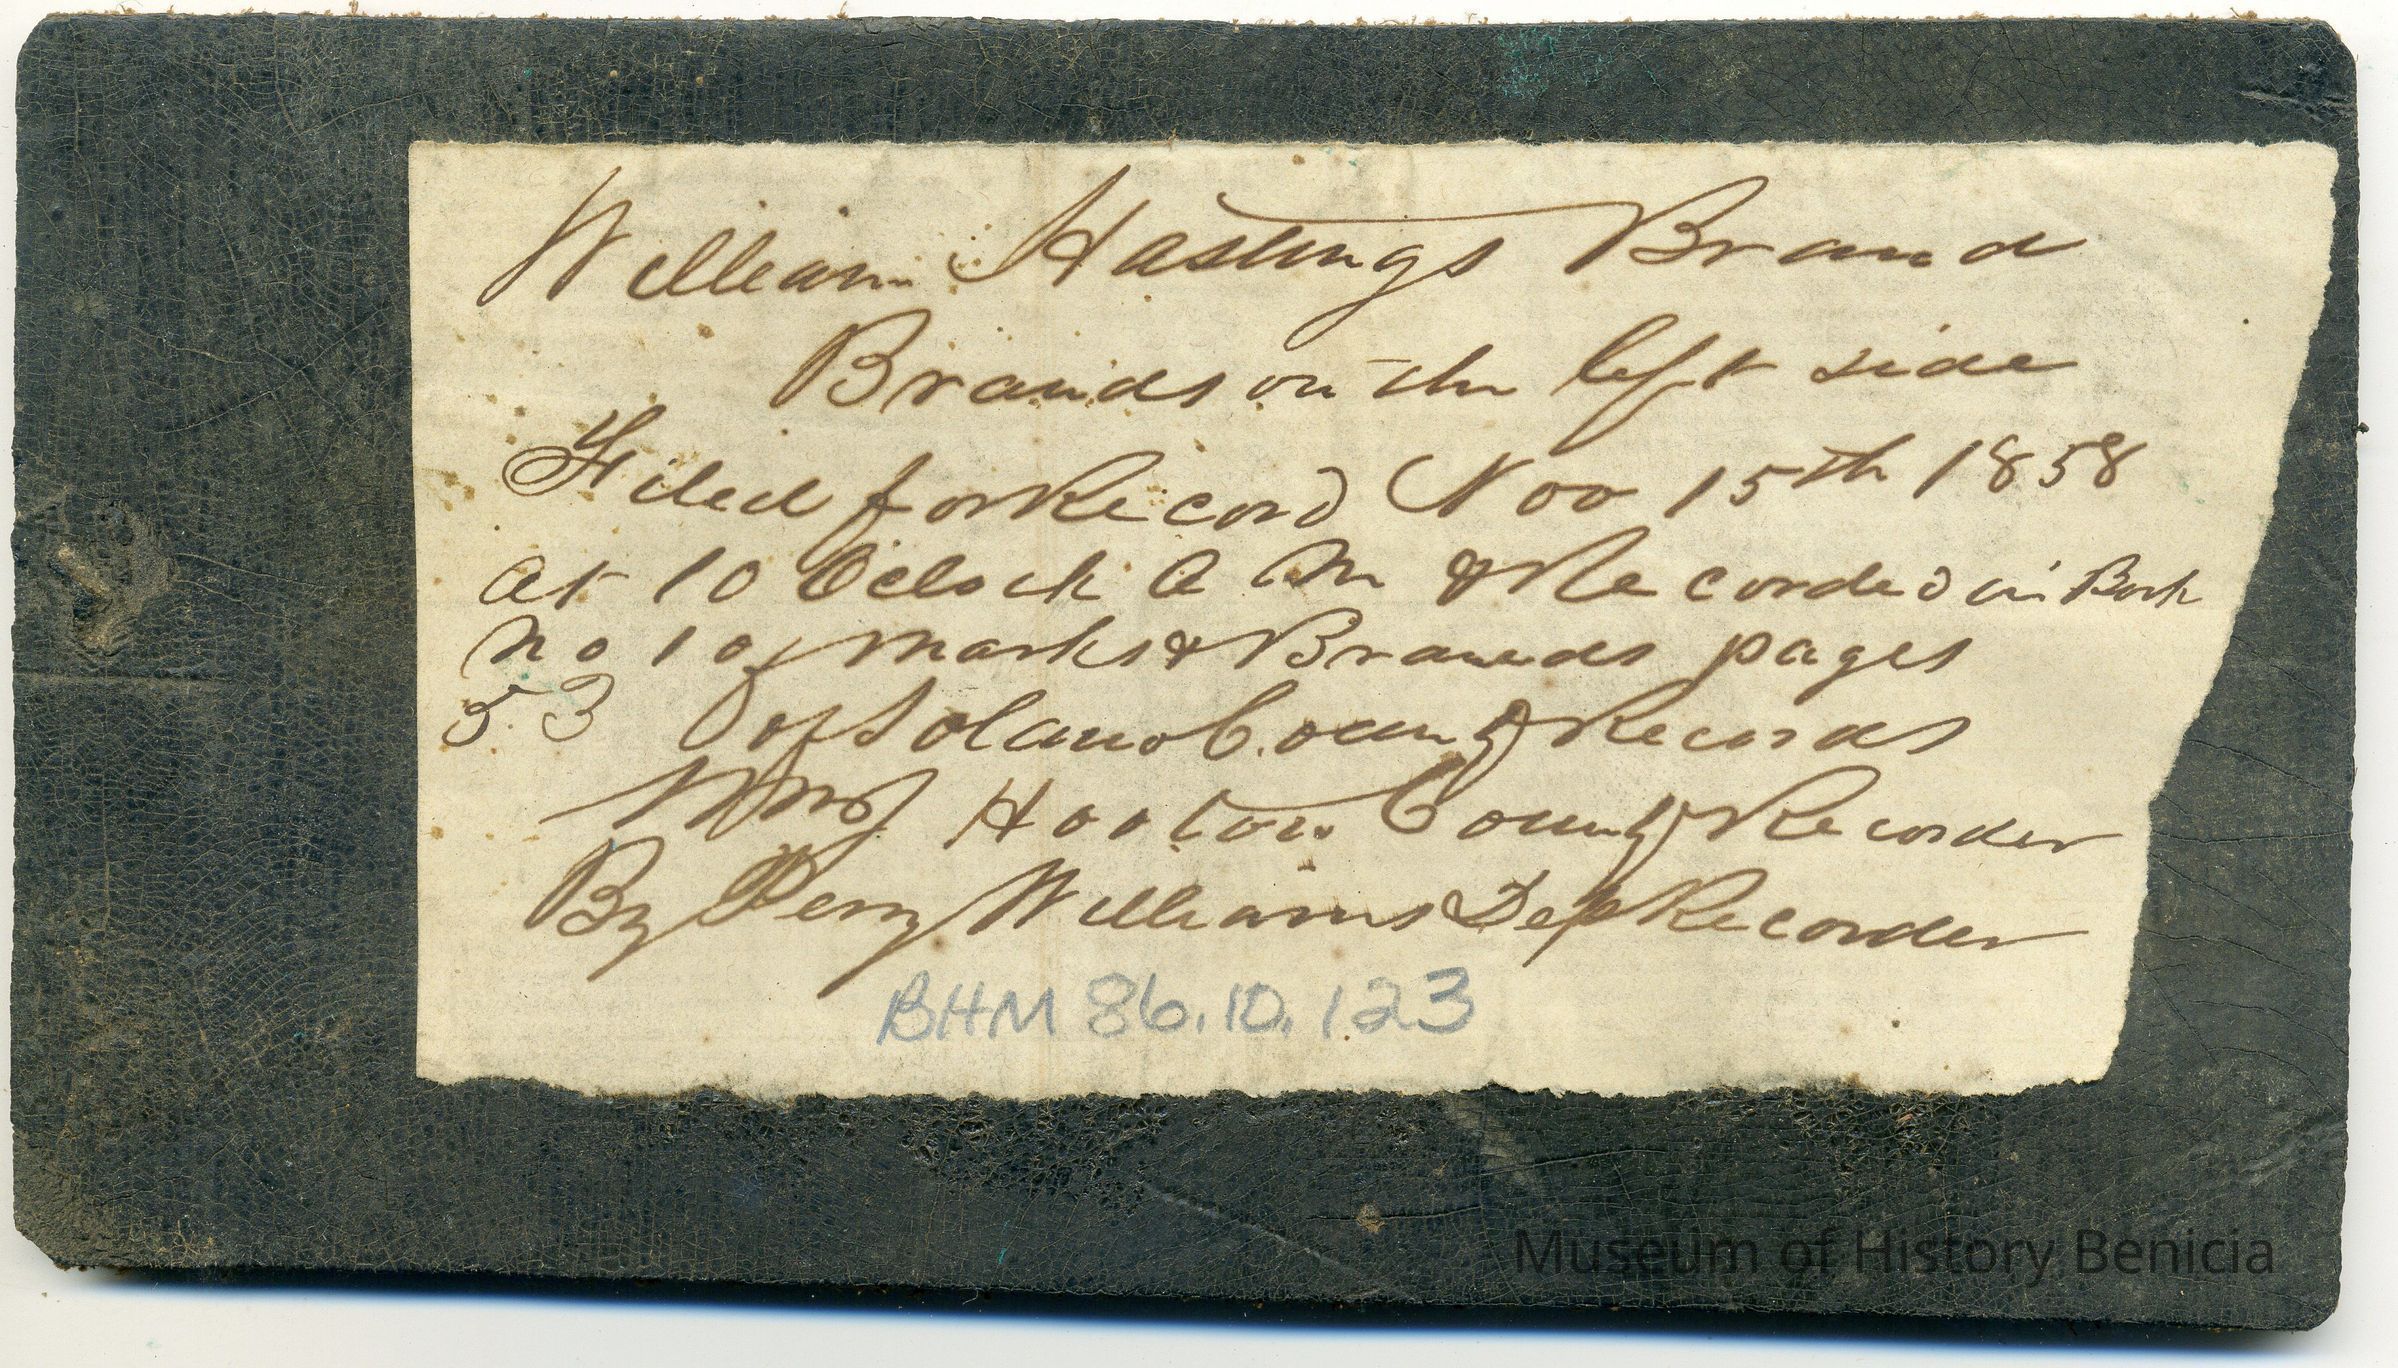 William Hastings Brand
Brands on the left side
Filed for Record Nov 15th 1858
at 10 Oclock A M & Recorded in Book
No 1 of Marks & Brands pages
53 of Solano County Records
Hooton County Recorder
By Perry Williams Dep Recorder
BHM 86.10.123
Museum of History Benicia